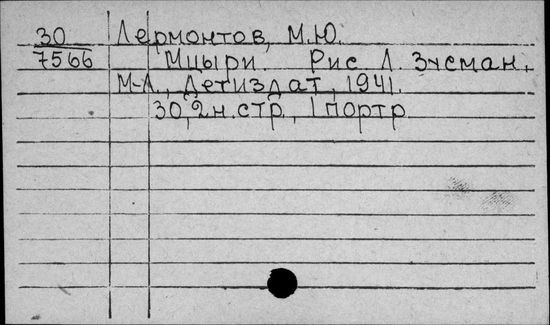 30 Лермонтов, М.Ю.
7566 Мцыри. Рис. Л. Зусман.
М-Л., Детиздат, 1941.
30, 2н.стр., 1 портр